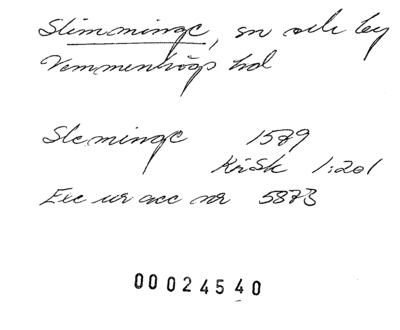 Slimminge, sn och by
Vemmenhögs hd
Sleminge 1589
KrSk 1:201
Exc ur acc nr 5873
00024540